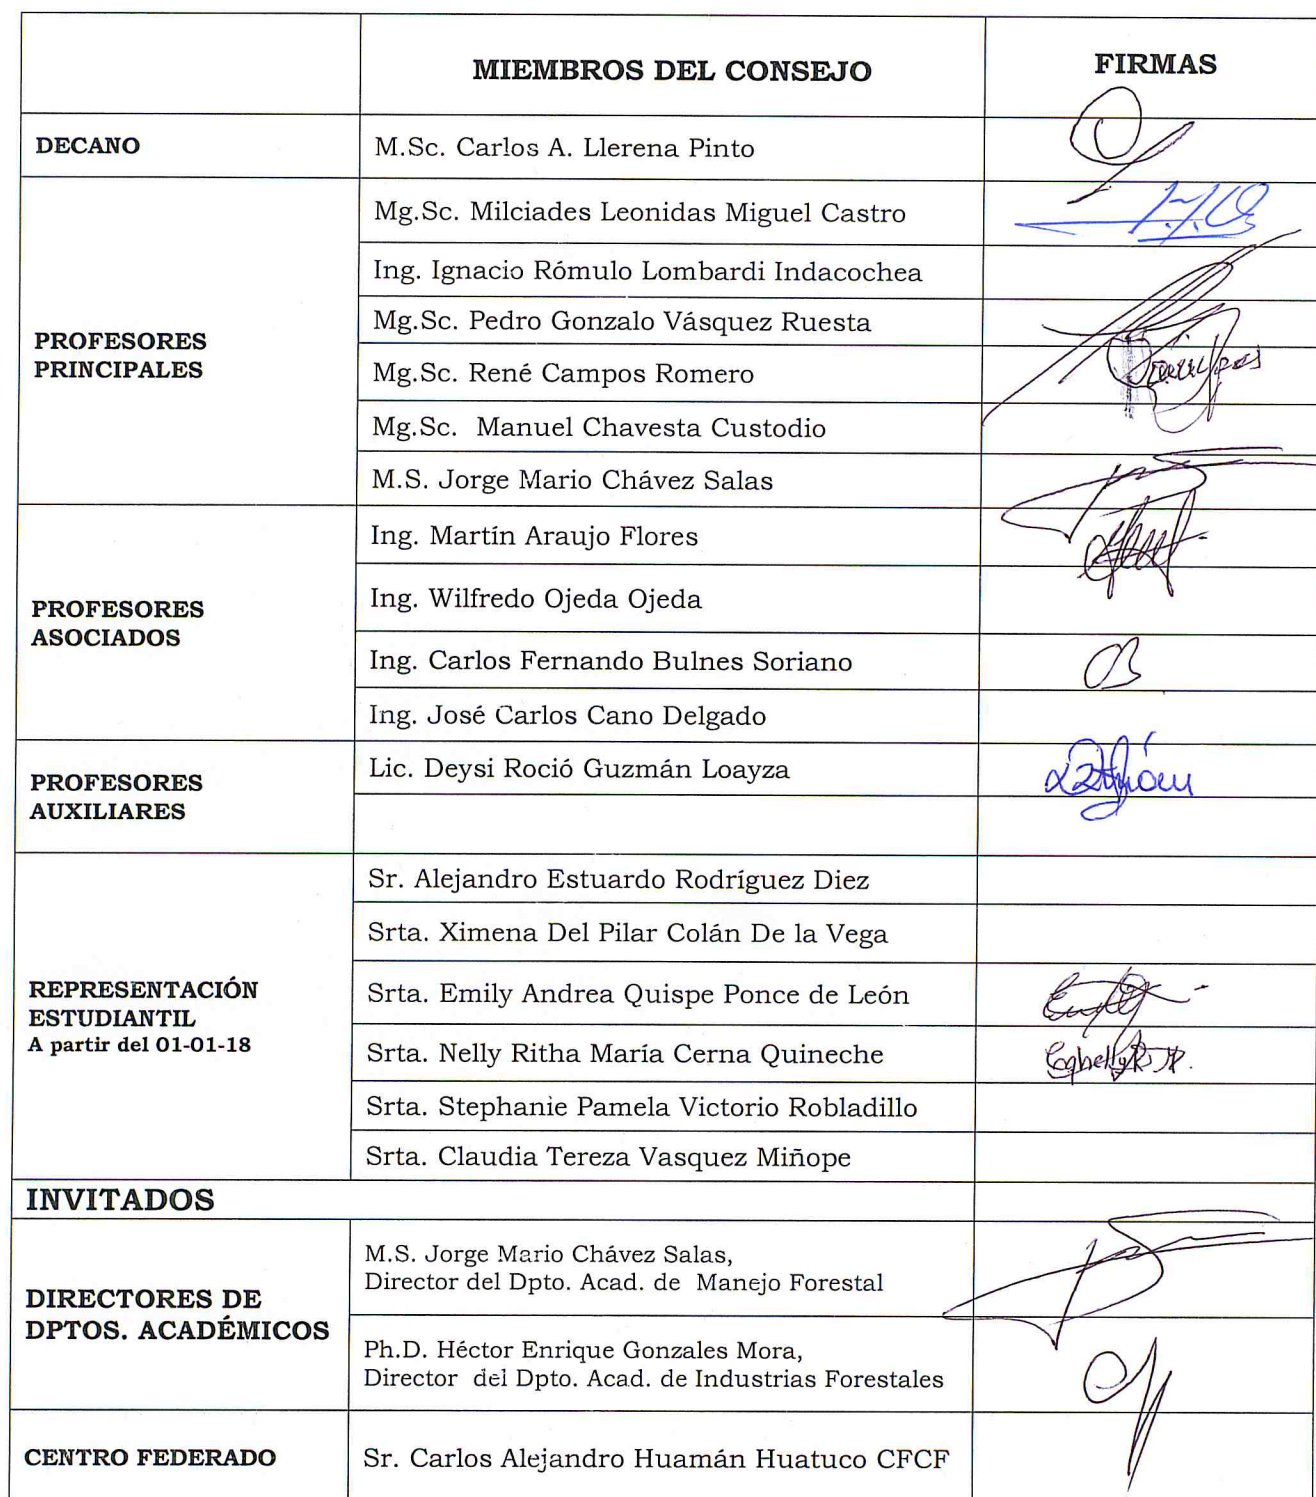 MIEMBROS DEL CONSEJO
FIRMAS
DECANO
M.Sc. Carlos A. Llerena Pinto
PROFESORES
PRINCIPALES
Mg.Sc. Milciades Leonidas Miguel Castro
Ing. Ignacio Rómulo Lombardi Indacochea
Mg.Sc. Pedro Gonzalo Vásquez Ruesta
Mg.Sc. René Campos Romero
Mg.Sc. Manuel Chavesta Custodio
M.S. Jorge Mario Chávez Salas
PROFESORES
ASOCIADOS
Ing. Martín Araujo Flores
Ing. Wilfredo Ojeda Ojeda
Ing. Carlos Fernando Bulnes Soriano
Ing. José Carlos Cano Delgado
PROFESORES
AUXILIARES
Lic. Deysi Roció Guzmán Loayza
REPRESENTACIÓN
ESTUDIANTIL
A partir del 01-01-18
Sr. Alejandro Estuardo Rodríguez Diez
Srta. Ximena Del Pilar Colán De la Vega
Srta. Emily Andrea Quispe Ponce de León
Srta. Nelly Ritha María Cerna Quineche
Srta. Stephanie Pamela Victorio Robladillo
Srta. Claudia Tereza Vasquez Miñope
INVITADOS
DIRECTORES DE
DPTOS. ACADÉMICOS
M.S. Jorge Mario Chávez Salas,
Director del Dpto. Acad. de Manejo Forestal
Ph.D. Héctor Enrique Gonzales Mora,
Director del Dpto. Acad. de Industrias Forestales
CENTRO FEDERADO
Sr. Carlos Alejandro Huamán Huatuco CFCF